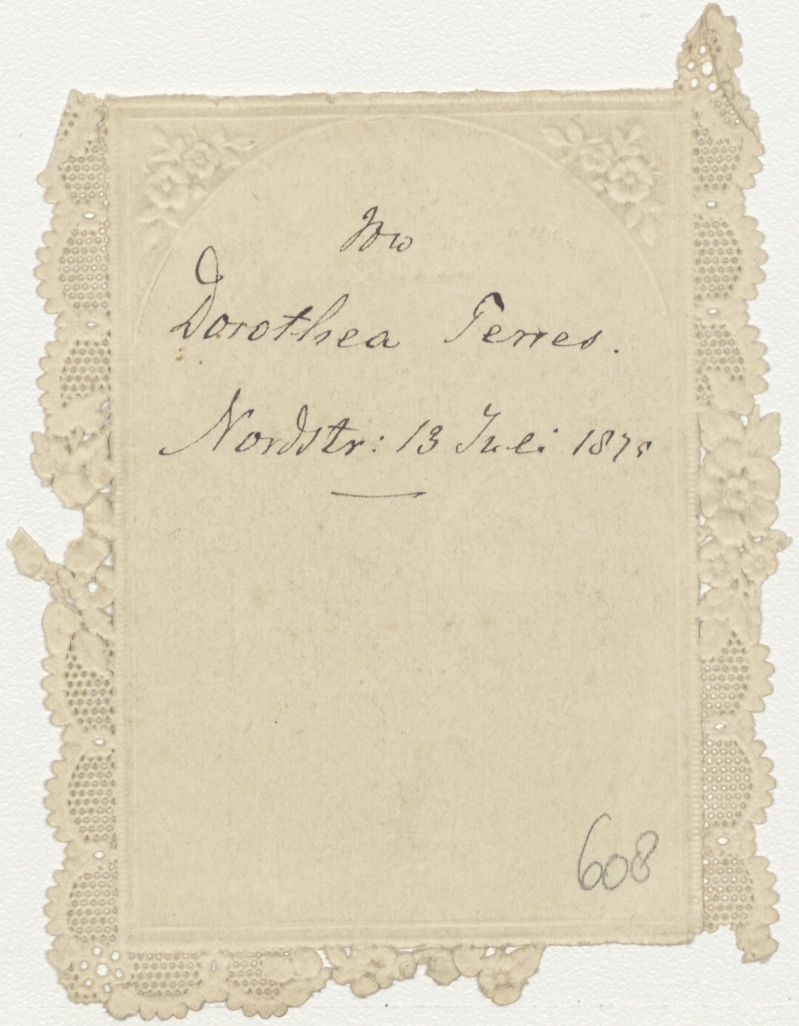 Dorothea Terres.
Nordstr: 13 Juli 1875
608